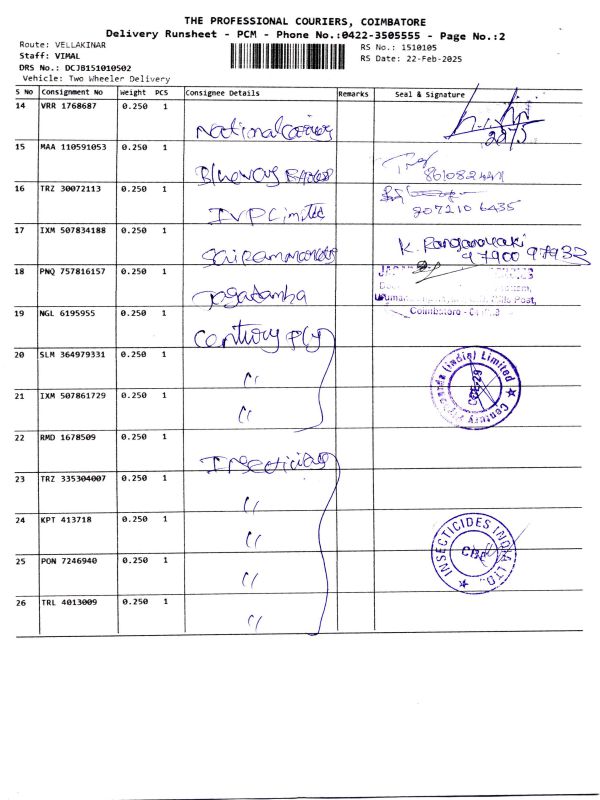 THE PROFESSIONAL COURIERS, COIMBATORE
Delivery Runsheet - PCM - Phone No.:0422-3505555 - Page No.:2
Route: VELLAKINAR
RS No.: 1510105
Staff: VIMAL
RS Date: 22-Feb-2025
DRS No.: DCJB151010502
Vehicle: Two Wheeler Delivery
S No Consignment No Weight PCS Consignee Details Remarks Seal & Signature
14 VRR 1768687 0.250 1 National
15 MAA 110591053 0.250 1
16 TRZ 30072113 0.250 1 IVP Limited
17 IXM 507834188 0.250 1 K. Ranganayaki
97900 97932
18 PNQ 757816157 0.250 1 Jagatamba
Post,
Coimbatore -
19 NGL 6195955 0.250 1 Century Ply
20 SLM 364979331 0.250 1 "
21 IXM 507861729 0.250 1 "
(India) Limited ★ Century
22 RMD 1678509 0.250 1
23 TRZ 335304007 0.250 1 "
24 KPT 413718 0.250 1 "
INSECTICIDES INDIA LTD. ★
CBE
25 PON 7246940 0.250 1 "
26 TRL 4013009 0.250 1 "